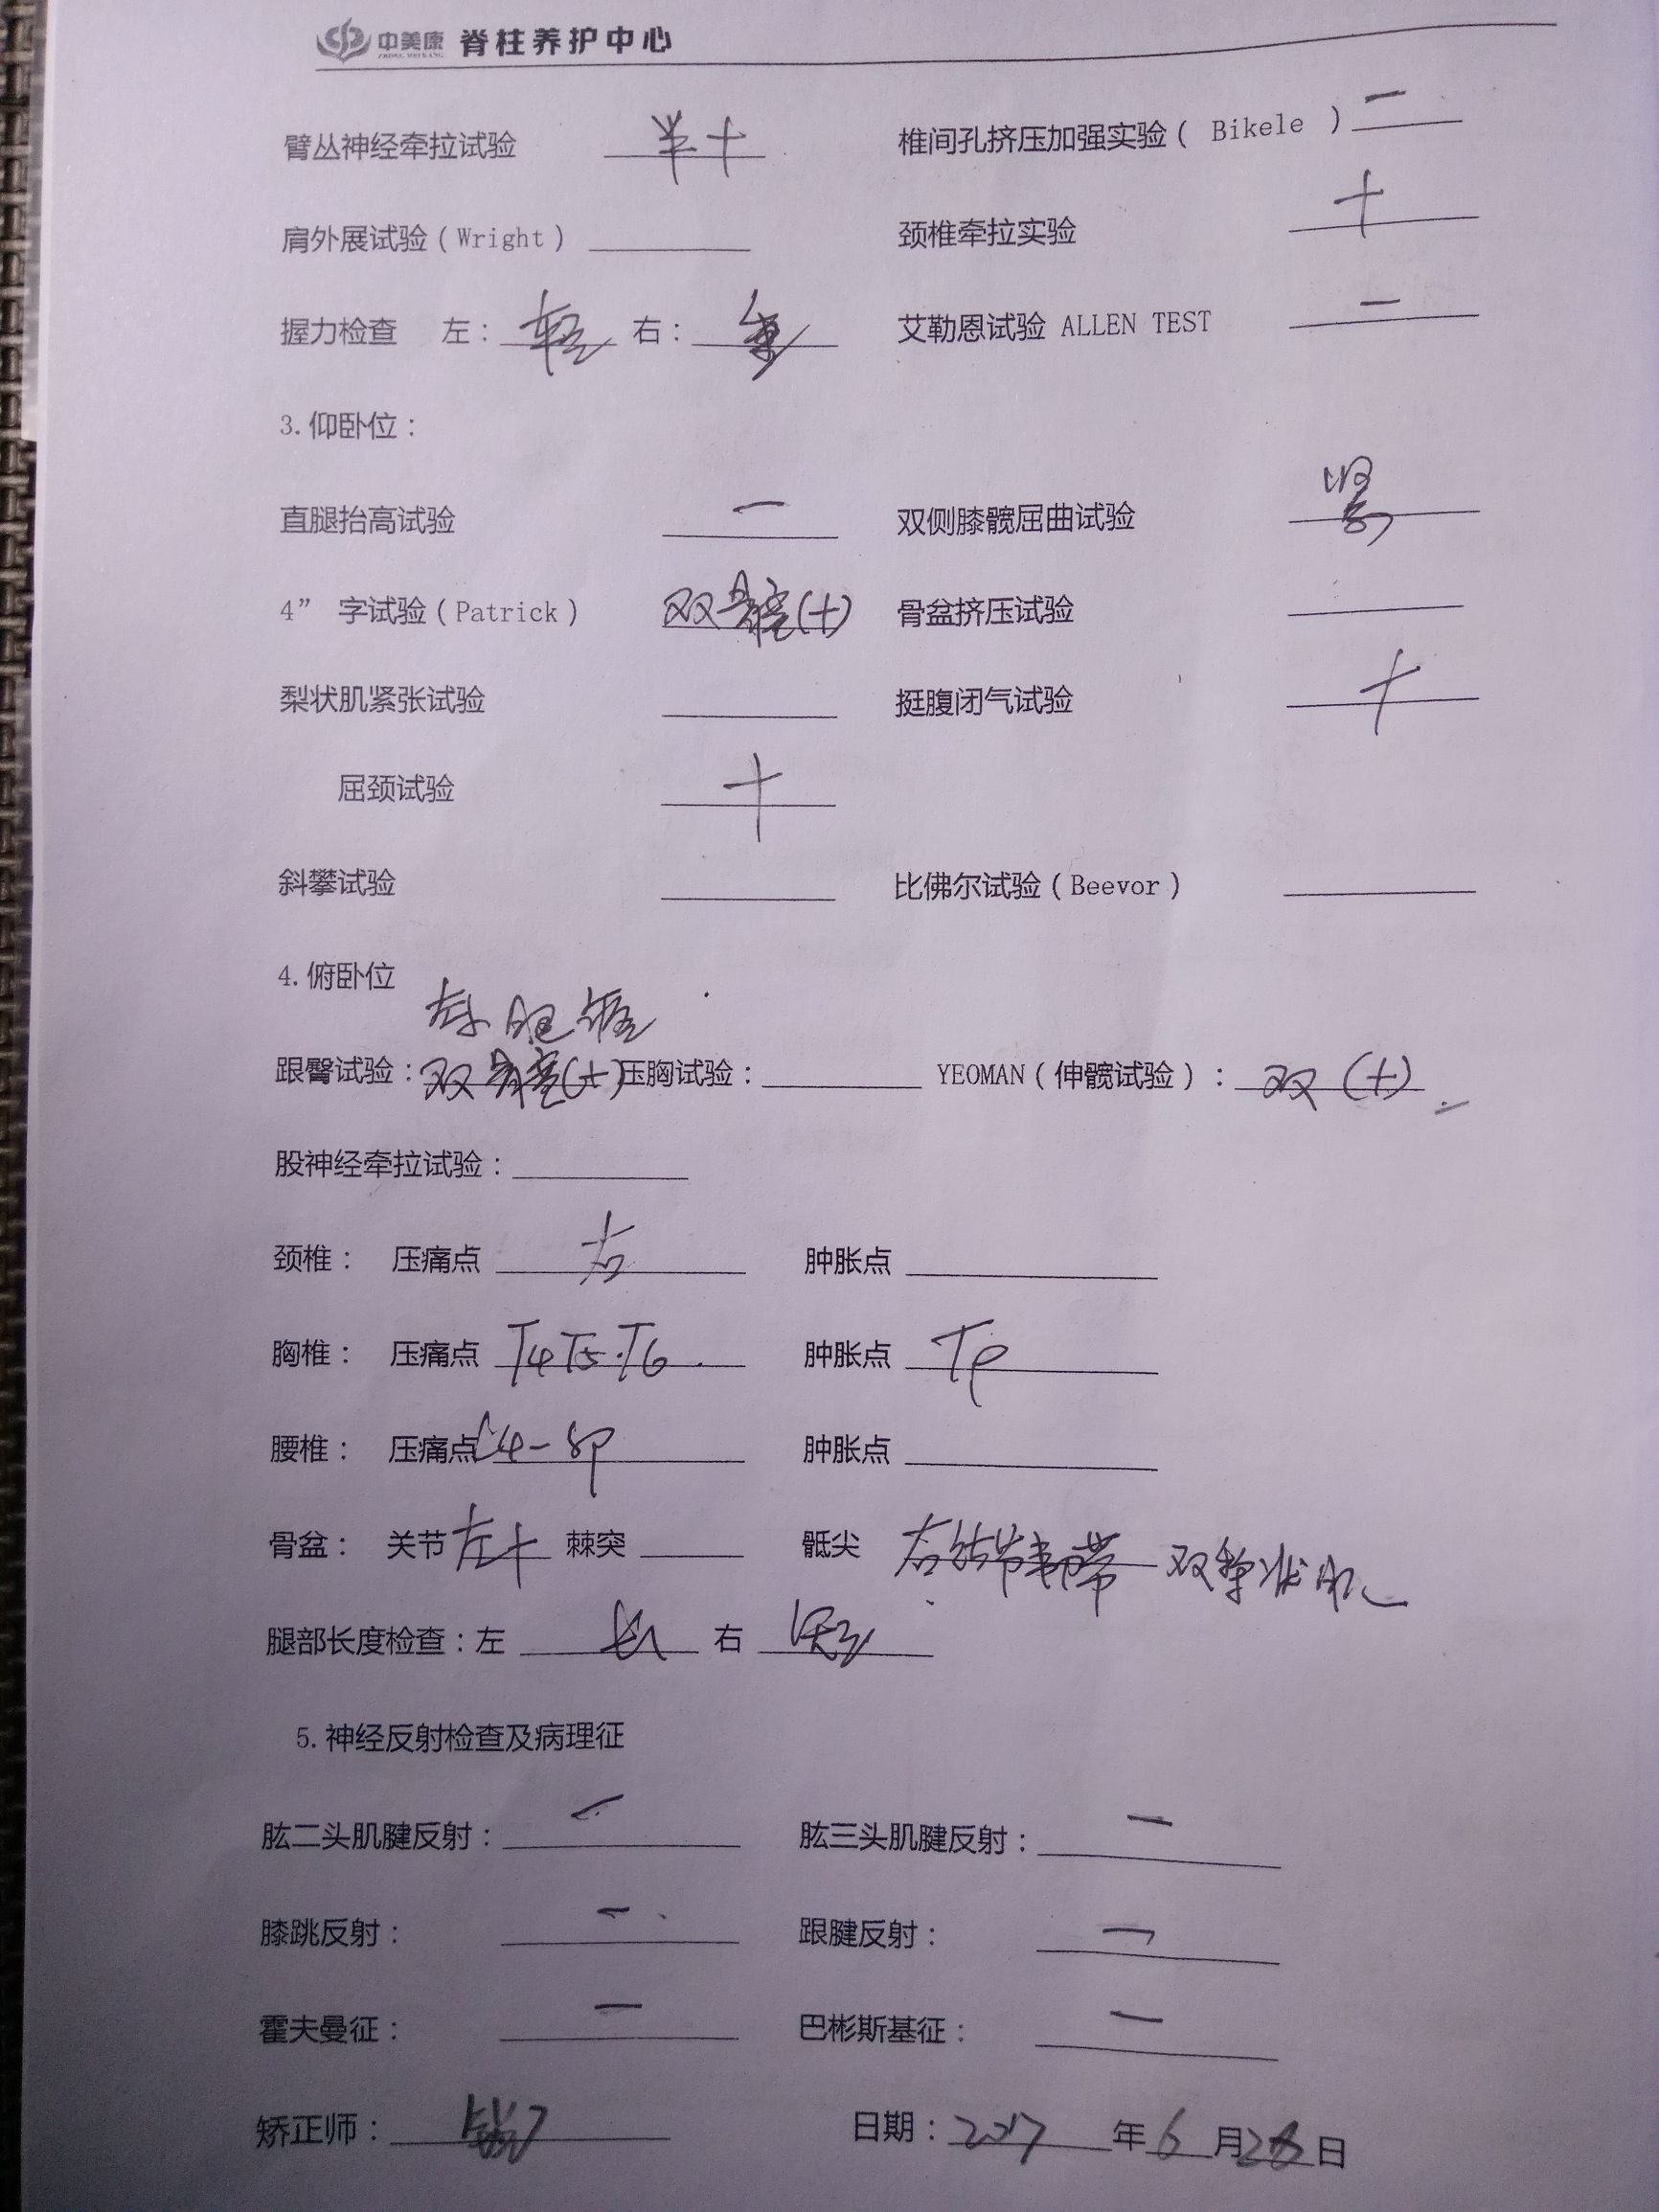 中美康 脊柱养护中心
ZHONG MEI KANG
臂丛神经牵拉试验 半+ 椎间孔挤压加强实验( Bikele ) 一
肩外展试验(Wright) 颈椎牵拉实验 +
握力检查 左: 轻 右: 重 艾勒恩试验 ALLEN TEST 一
3.仰卧位:
直腿抬高试验 一 双侧膝髋屈曲试验 紧
4” 字试验(Patrick) 双髋(+) 骨盆挤压试验
梨状肌紧张试验 挺腹闭气试验 +
屈颈试验 +
斜攀试验 比佛尔试验(Beevor)
4.俯卧位
跟臀试验: 双髋(+) 压胸试验: YEOMAN(伸髋试验): 双(+)
股神经牵拉试验:
颈椎: 压痛点 右 肿胀点
胸椎: 压痛点 T4 T5 · T6 . 肿胀点
腰椎: 压痛点 肿胀点
骨盆: 关节 左+ 棘突 骶尖 右结节韧带 双梨状肌
腿部长度检查:左 长 右 短
5.神经反射检查及病理征
肱二头肌腱反射: 一 肱三头肌腱反射: 一
膝跳反射: 一 跟腱反射: 一
霍夫曼征: 一 巴彬斯基征: 一
矫正师: 日期: 2017 年 6 月 28 日